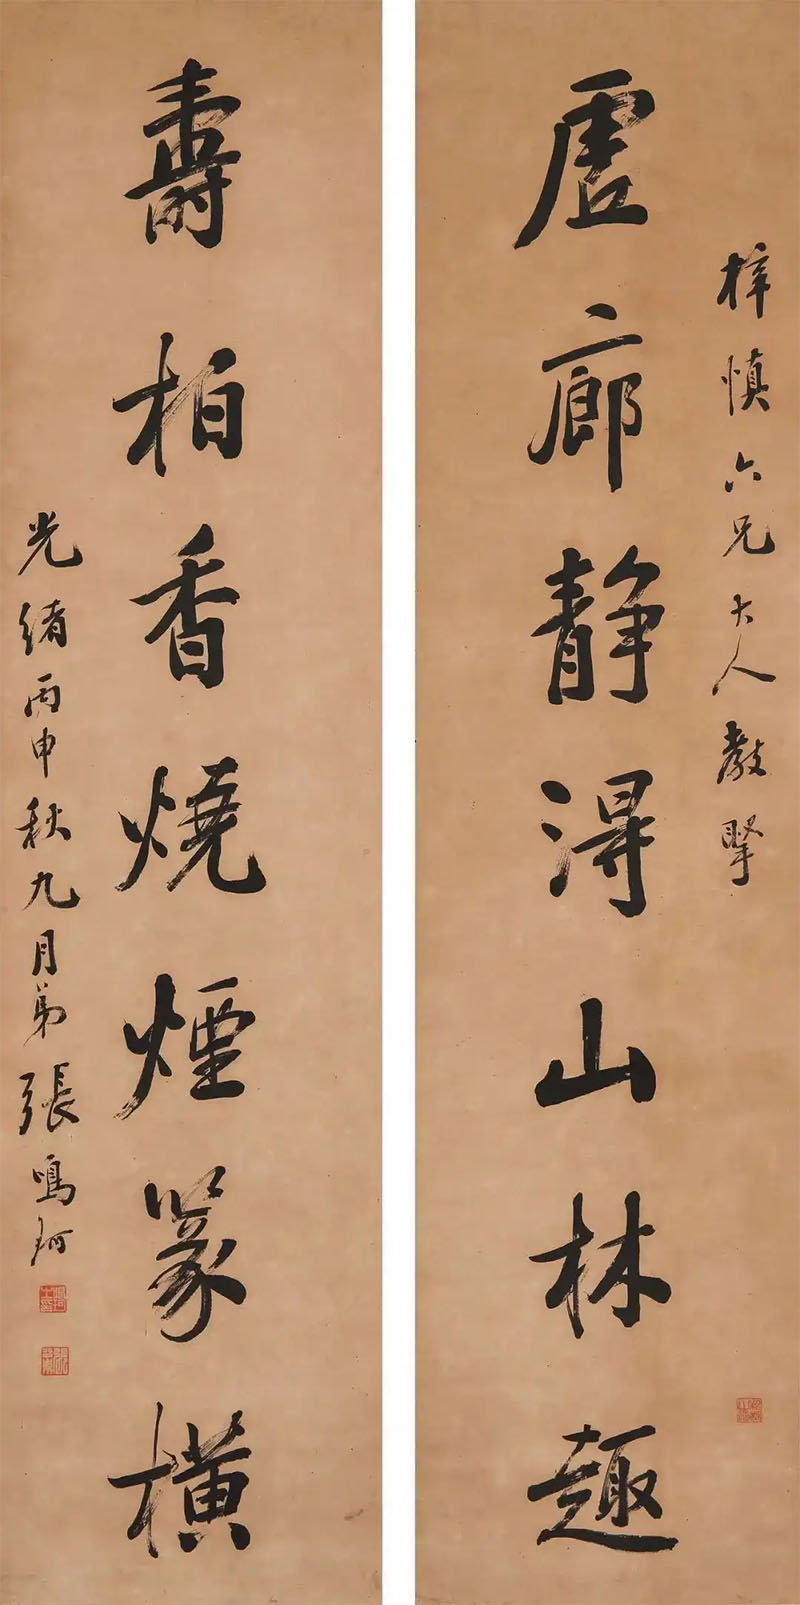 梓慎六兄大人教掔
虛廊靜得山林趣
壽柏香燒煙篆橫
光緒丙申秋九月弟張鳴珂